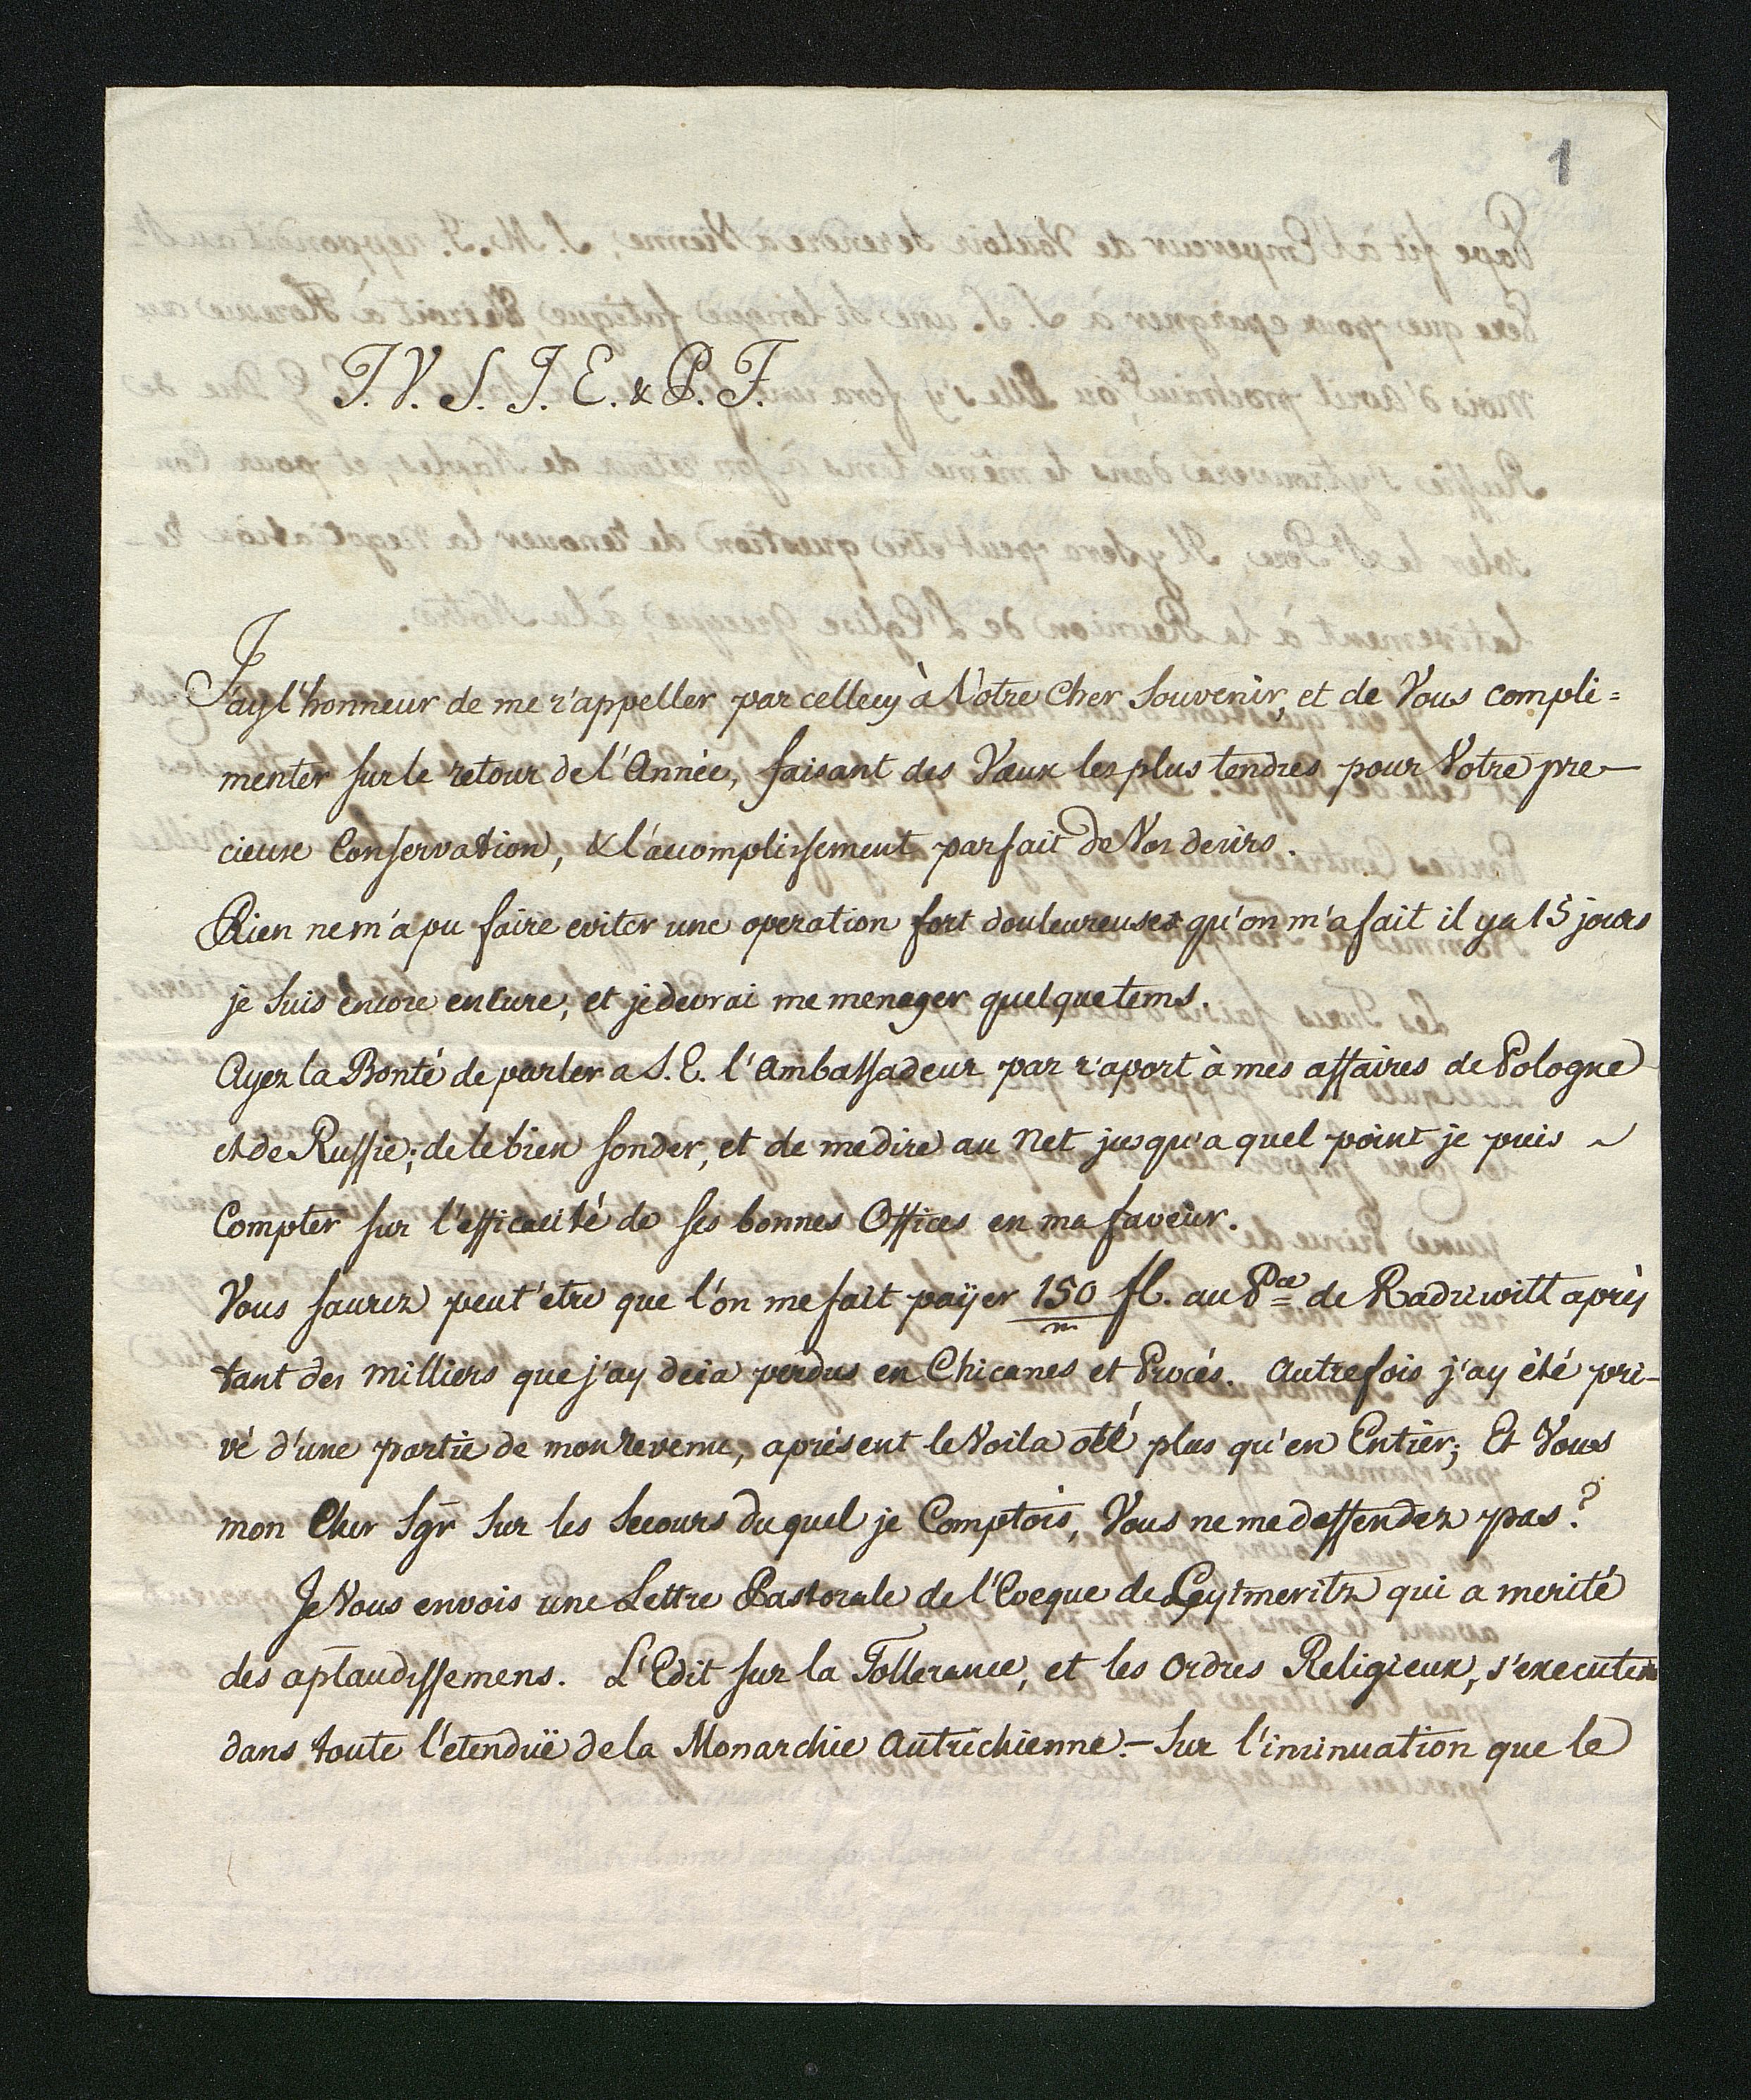 1
T. V. S. J. E. & P. F.
J'ay l'honneur de me r'appeller par cellecy à Votre Cher Souvenir, et de Vous compli=
menter sur le retour de l'Année, faisant des Vœux les plus tendres pour Votre pre-
cieuse Conservation, & l'accomplissement parfait de Vos desirs.
Rien ne m'a pu faire eviter une operation fort douleureuse qu'on m'a fait il ya 15 jours
je suis encore en Cure, et je devrai me menager quelque tems.
Ayez la Bonté de parler a S. E. l'Ambassadeur par r'aport à mes affaires de Pologne
et de Russie; de le bien sonder, et de me dire au net jusqu'a quel point je puis
Compter sur l'efficacité de ses bonnes Offices en ma faveur.
Vous saurez peut'etre que l'on me fait payer 150 fl. au Pce de Radziwill après
m
tant des milliers que j'ay deia perdus en Chicanes et Procés. Autrefois j'ay été pri-
vé d'une partie de mon revenu, apresent le Voila oté plus qu'en Entier; Et Vous
mon Cher Sgr sur les Secours du quel je Comptois, Vous ne me deffendez pas?
Je Vous envois une Lettre Pastorale de l'Eveque de Leytmeritz qui a merité
des aplaudissemens. L'Edit sur la Tollerance, et les Ordres Religieux, s'executent
dans toute l'etendüe de la Monarchie Autrichienne.- Sur l'insinuation que le